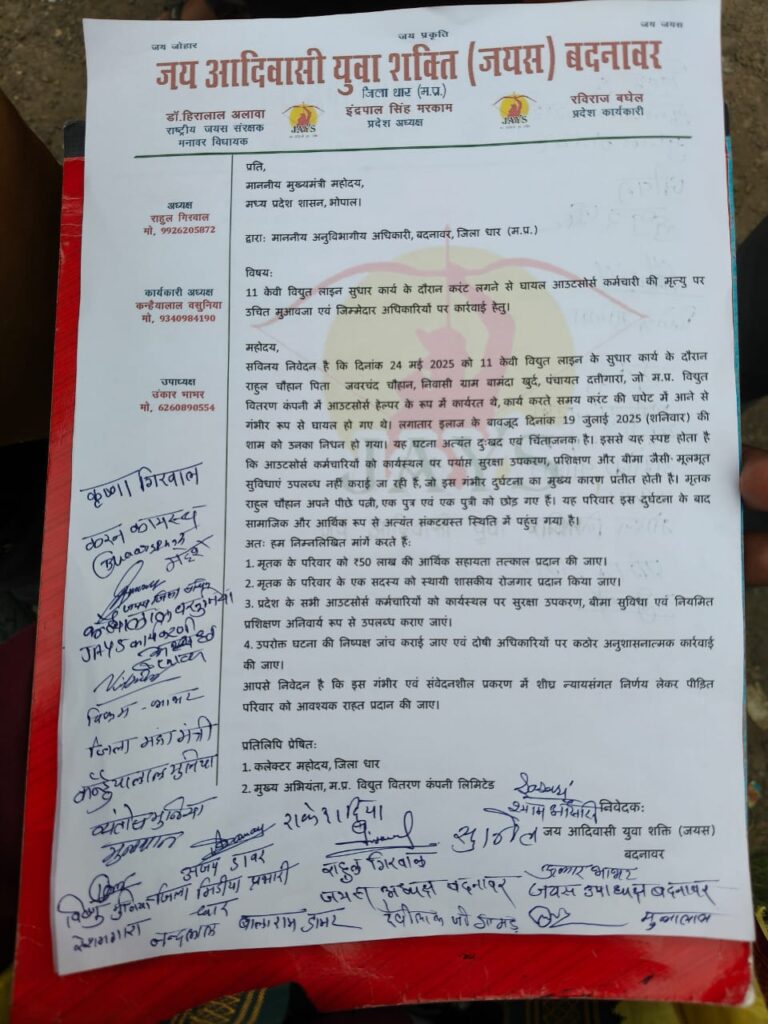 जय जोहार
जय प्रकृति
जय जयस
जय आदिवासी युवा शक्ति (जयस) बदनावर
जिला धार (म.प्र.)
डॉ.हिरालाल अलावा
राष्ट्रीय जयस संरक्षक
मनावर विधायक
JAYS
इंद्रपाल सिंह मरकाम
प्रदेश अध्यक्ष
JAYS
रविराज बघेल
प्रदेश कार्यकारी
अध्यक्ष
राहुल गिरवाल
मो. 9926205872
कार्यकारी अध्यक्ष
कन्हैयालाल वसुनिया
मो. 9340984190
उपाध्यक्ष
उंकार भाभर
मो. 6260890554
प्रति,
माननीय मुख्यमंत्री महोदय,
मध्य प्रदेश शासन, भोपाल।
द्वारा: माननीय अनुविभागीय अधिकारी, बदनावर, जिला धार (म.प्र.)
विषय:
11 केवी विद्युत लाइन सुधार कार्य के दौरान करंट लगने से घायल आउटसोर्स कर्मचारी की मृत्यु पर
उचित मुआवजा एवं जिम्मेदार अधिकारियों पर कार्रवाई हेतु।
महोदय,
सविनय निवेदन है कि दिनांक 24 मई 2025 को 11 केवी विद्युत लाइन के सुधार कार्य के दौरान
राहुल चौहान पिता जवरचंद चौहान, निवासी ग्राम बामंदा खुर्द, पंचायत दत्तीगारा, जो म.प्र. विद्युत
वितरण कंपनी में आउटसोर्स हेल्पर के रूप में कार्यरत थे, कार्य करते समय करंट की चपेट में आने से
गंभीर रूप से घायल हो गए थे। लगातार इलाज के बावजूद दिनांक 19 जुलाई 2025 (शनिवार) की
शाम को उनका निधन हो गया। यह घटना अत्यंत दुःखद एवं चिंताजनक है। इससे यह स्पष्ट होता है
कि आउटसोर्स कर्मचारियों को कार्यस्थल पर पर्याप्त सुरक्षा उपकरण, प्रशिक्षण और बीमा जैसी मूलभूत
सुविधाएं उपलब्ध नहीं कराई जा रही हैं, जो इस गंभीर दुर्घटना का मुख्य कारण प्रतीत होती है। मृतक
राहुल चौहान अपने पीछे पत्नी, एक पुत्र एवं एक पुत्री को छोड़ गए हैं। यह परिवार इस दुर्घटना के बाद
सामाजिक और आर्थिक रूप से अत्यंत संकटग्रस्त स्थिति में पहुंच गया है।
अतः हम निम्नलिखित मांगें करते हैं:
1. मृतक के परिवार को ₹50 लाख की आर्थिक सहायता तत्काल प्रदान की जाए।
2. मृतक के परिवार के एक सदस्य को स्थायी शासकीय रोजगार प्रदान किया जाए।
3. प्रदेश के सभी आउटसोर्स कर्मचारियों को कार्यस्थल पर सुरक्षा उपकरण, बीमा सुविधा एवं नियमित
प्रशिक्षण अनिवार्य रूप से उपलब्ध कराए जाएं।
4. उपरोक्त घटना की निष्पक्ष जांच कराई जाए एवं दोषी अधिकारियों पर कठोर अनुशासनात्मक कार्रवाई
की जाए।
आपसे निवेदन है कि इस गंभीर एवं संवेदनशील प्रकरण में शीघ्र न्यायसंगत निर्णय लेकर पीड़ित
परिवार को आवश्यक राहत प्रदान की जाए।
प्रतिलिपि प्रेषित:
1. कलेक्टर महोदय, जिला धार
2. मुख्य अभियंता, म.प्र. विद्युत वितरण कंपनी लिमिटेड
निवेदक:
जय आदिवासी युवा शक्ति (जयस)
बदनावर
कृष्णा गिरवाल
JAYS कार्यकारी
अध्यक्ष
विक्रम - भाभर
जिला महामंत्री
कन्हैयालाल मुनिया
अजय डावर
जिला मिडीया प्रभारी
धार
राहुल गिरवाल
जयस अध्यक्ष बदनावर
जयस उपाध्यक्ष बदनावर
नन्दलाल
बालाराम डामर